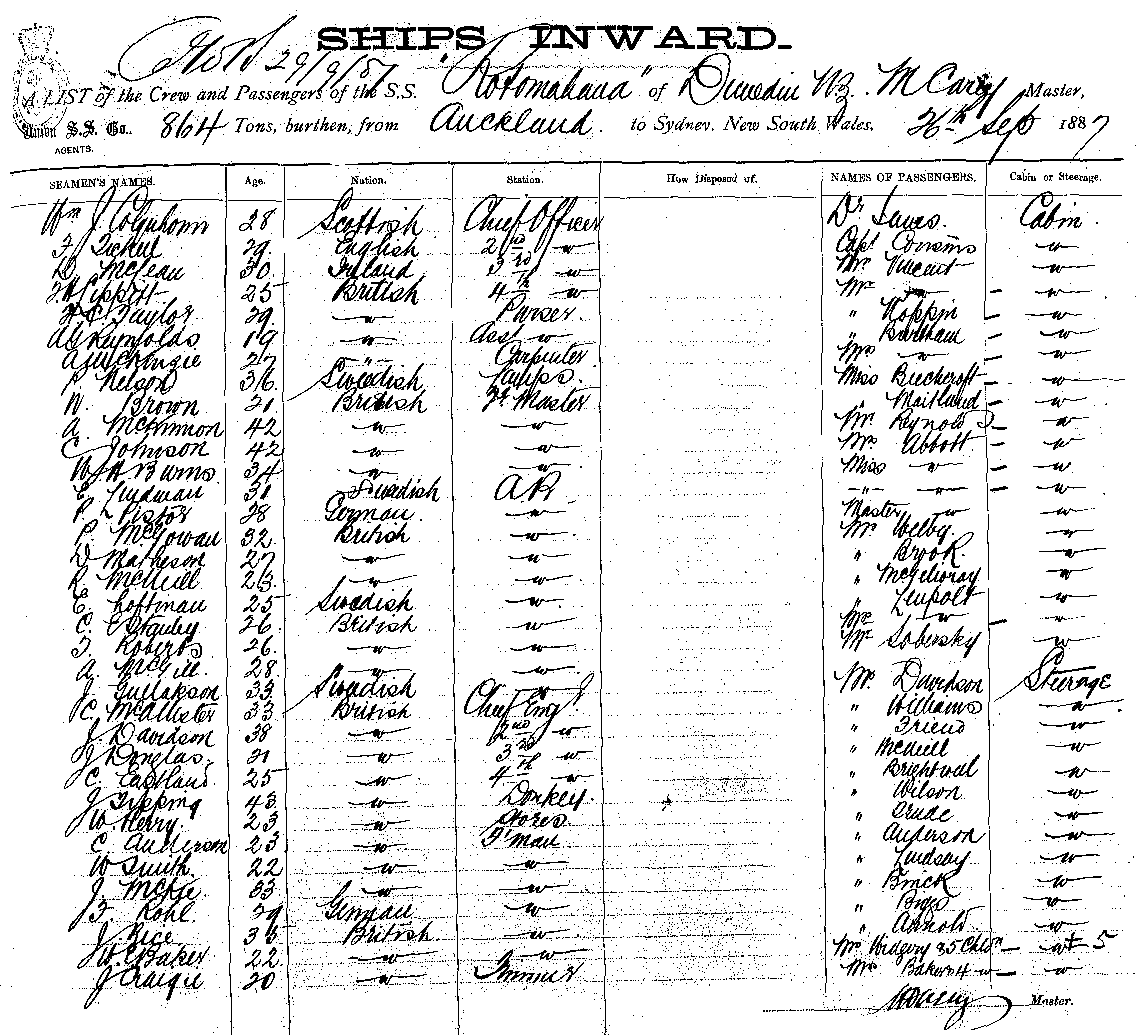 SHIPS INWARD.
29/9/87
A LIST of the Crew and Passengers of the S.S. "Rotomahana" of Dunedin NZ M Carey Master,
Union S.S. Co., 864 Tons, burthen, from Auckland. to Sydney, New South Wales, 26th Sep 1887
AGENTS.
SEAMEN'S NAMES. Age. Nation. Station. How Disposed of. NAMES OF PASSENGERS. Cabin or Steerage.
Wm J. Colquhoun 28 Scottish Chief Officer Dr Cabin
F. 29 English 2nd " Capt Cousins "
D. McLean 30 Ireland 3rd " Mr Vincent "
Tippitt 25 British 4th " Mrs " "
Taylor 29 " Purser " Hoppin "
A C Reynolds 19 " Asst " " Bartham "
A McKenzie 27 " Carpenter Mrs " "
P. Nelson 36 Swedish Lamps. Miss Beechcroft "
W. Brown 21 British Qr Master " Maitland "
A. McKinnon 42 " " Mr Reynolds "
C. Johnson 42 " " Mrs Abbott "
W J H Burns 34 " " Miss " "
E. Lindman 31 Swedish AB " " "
P. L Pistor 28 German. " Master " "
P. McGowan 32 British " Mr Welby "
D Matheson 27 " " " Brook. "
R McNeill 23 " " " McGilvray "
E. Loffman 25 Swedish " " Leupolt "
C. E Stanley 26. British " Mrs " "
T. Roberts 26. " " Mr Sobersky "
A. McGill. 28 " "
J. Gullakson 33 Swedish " Mr. Davidson Steerage
C. McAllister 33 British Chief Eng " Williams "
J. Davidson 38 " 2nd " " Friend "
J Douglas. 31 " 3rd " " McNeill "
C. Eastland 25 " 4th " " Brightwell "
J Tipping 43 " Donkey. " Wilson "
W. Kerry. 23 " Stores " Crude "
C. Anderson 23 " F'man " Anderson "
W Smith. 22 " " " Lindsay "
J. McKie 33 " " " Brick "
J F. Kohl 29 German " " "
J Rice 35 British " " Arnold "
W. Baker 22 " " Mrs Ridgery & 5 Chldn " + 5
J Craigie 20 " Trimmer Mrs Baker & 4 " "
M Carey Master.